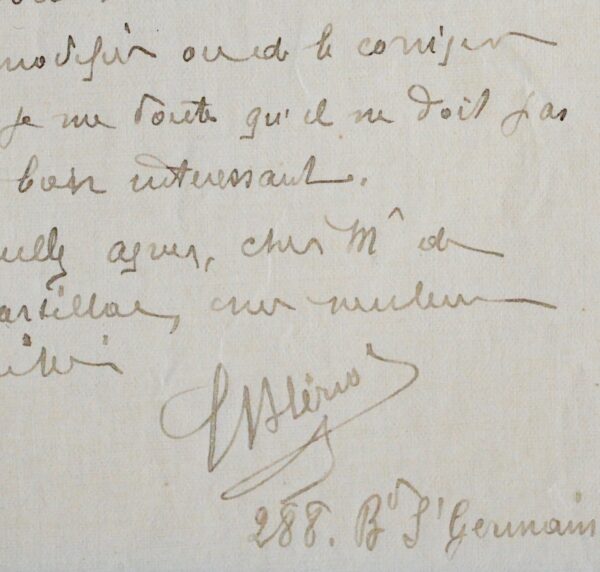 modifier ou de le corriger
je me doute qu'il ne doit pas
bien intéressant.
agréer, cher Mr de
arsillac, mes meilleurs
288. Bd St Germain